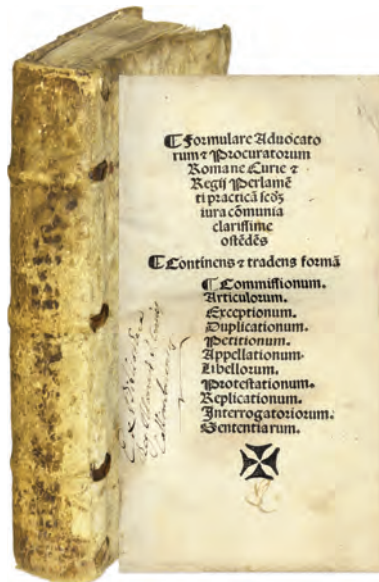 ¶ Formulare Aduocato
rum ⁊ Procuratorum
Romane Curie ⁊
Regij Perlamē
ti practicā scōʒ
iura cōmunia
clarissime
ostēdēs
¶ Continens ⁊ tradens formā
¶ Commissionum.
Articulorum.
Exceptionum.
Duplicationum.
Petitionum.
Appellationum.
Libellorum.
Protestationum.
Replicationum.
Interrogatoriorum.
Sententiarum.
Ex Bibliotheca